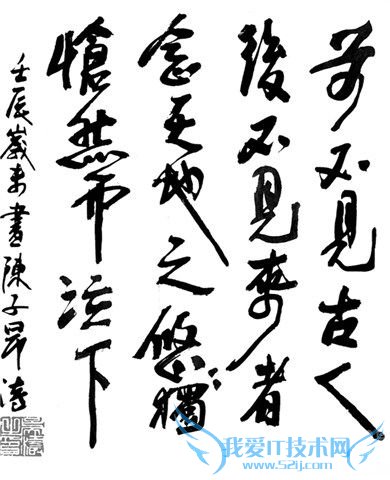 前不見古人
後不見來者
念天地之悠〻獨
愴然而泣下
壬辰歲末書陳子昂詩
我爱IT技术网
www.52ij.com